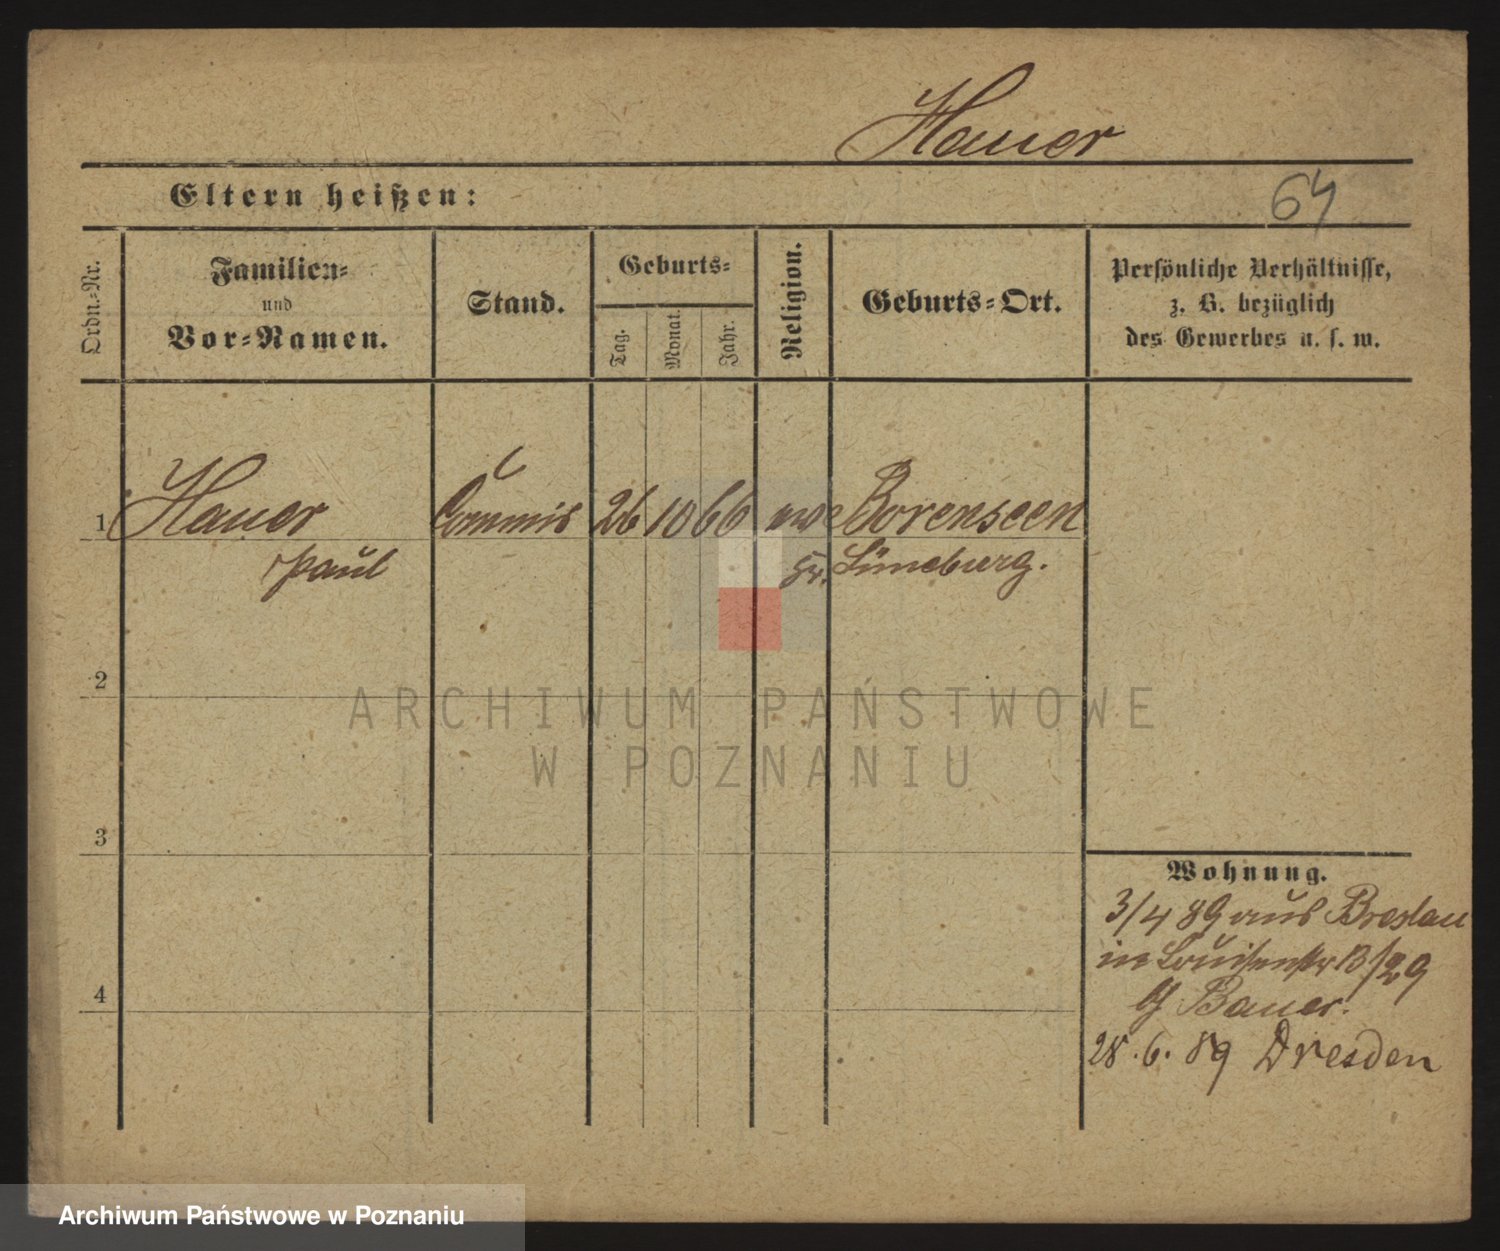 Hauer
Eltern heißen:
64
Ordn.-Nr.
Familien-
und
Vor-Namen.
Stand.
Geburts-
Tag.
Monat.
Jahr.
Religion.
Geburts-Ort.
Persönliche Verhältnisse,
z. B. bezüglich
des Gewerbes u. s. w.
1 Hauer Commis 26 10 66 Borenseen
Paul Kr. Lüneburg.
2
3
4
Wohnung.
3/4 89 aus Breslau
in Louisenstr 13/29
Bauer.
28.6.89 Dresden
ARCHIWUM PAŃSTWOWE
W POZNANIU
Archiwum Państwowe w Poznaniu